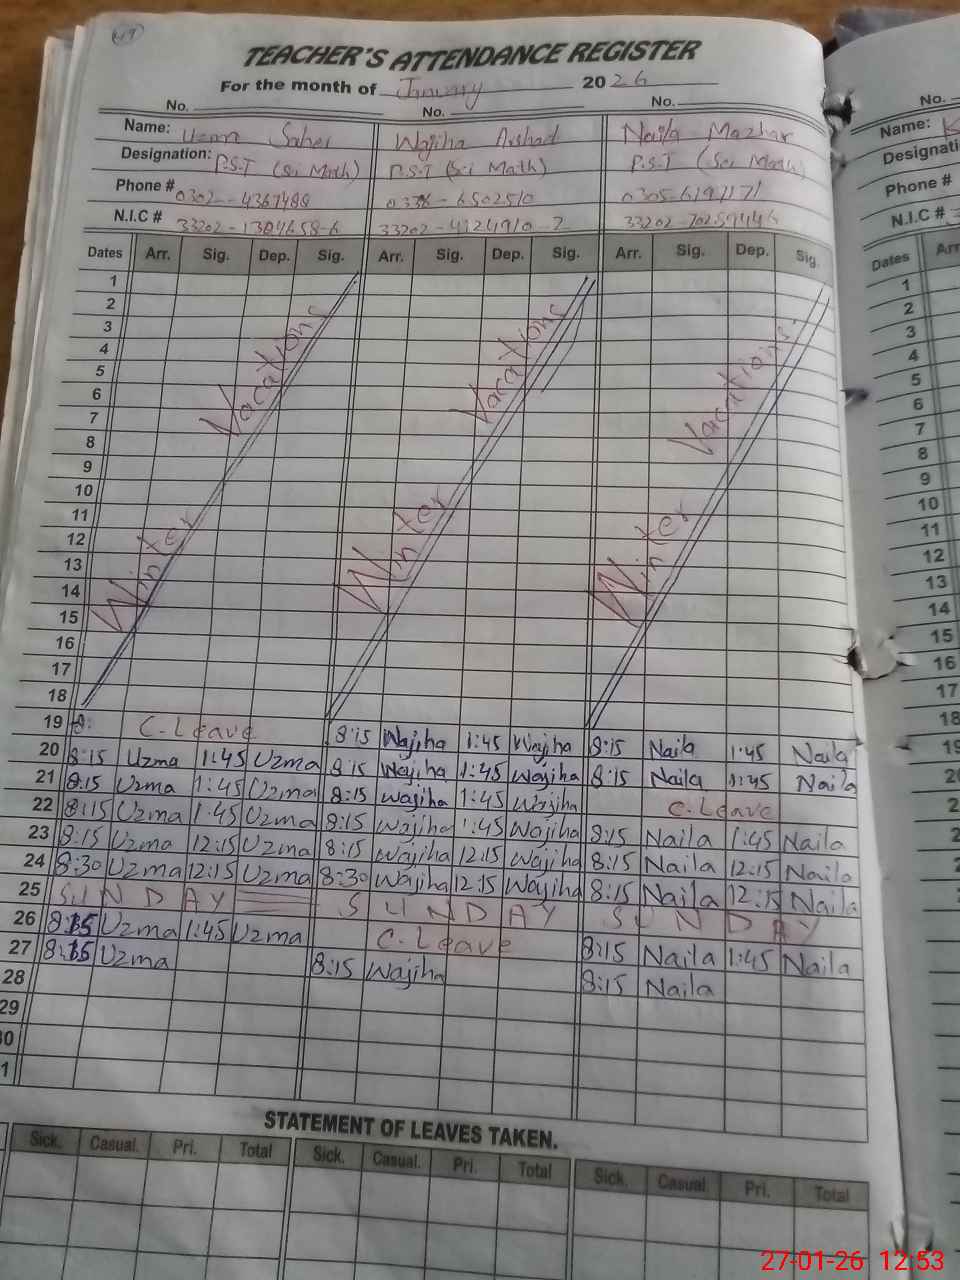 TEACHER'S ATTENDANCE REGISTER
For the month of January 2026
No. No. No.
Name: Uzma Saher Wajiha Arshad Naila Mazhar
Designation: P.S.T (Sci Math) P.S.T (Sci Math) P.S.T (Sci Math)
Phone # 0302--4367488 6502510
N.I.C # 33202
Dates Arr. Sig. Dep. Sig. Arr. Sig. Dep. Sig. Arr. Sig. Dep. Sig.
1
2
3
4
5
6
7
8
9
10
11
12
13
14
15
16
17
18
Winter Vacations Winter Vacations Winter Vacations
19 8: C.Leave 8:15 Wajiha 1:45 Wajiha 8:15 Naila 1:45 Naila
20 8:15 Uzma 1:45 Uzma 8:15 Wajiha 1:45 Wajiha 8:15 Naila 1:45 Naila
21 8:15 Uzma 1:45 Uzma 8:15 Wajiha 1:45 Wajiha C.Leave
22 8:15 Uzma 1:45 Uzma 8:15 Wajiha 1:45 Wajiha 8:15 Naila 1:45 Naila
23 8:15 Uzma 12:15 Uzma 8:15 Wajiha 12:15 Wajiha 8:15 Naila 12:15 Naila
24 8:30 Uzma 12:15 Uzma 8:30 Wajiha 12:15 Wajiha 8:15 Naila 12:15 Naila
25 SUNDAY SUNDAY SUNDAY
26 8:15 Uzma 1:45 Uzma C.Leave 8:15 Naila 1:45 Naila
27 8:15 Uzma 8:15 Wajiha 8:15 Naila
28
29
30
1
STATEMENT OF LEAVES TAKEN.
Sick. Casual. Pri. Total Sick. Casual. Pri. Total Sick. Casual. Pri. Total
No.
Name:
Designati
Phone #
N.I.C #
Dates Arr
1
2
3
4
5
6
7
8
9
10
11
12
13
14
15
16
17
18
19
27-01-26 12:53